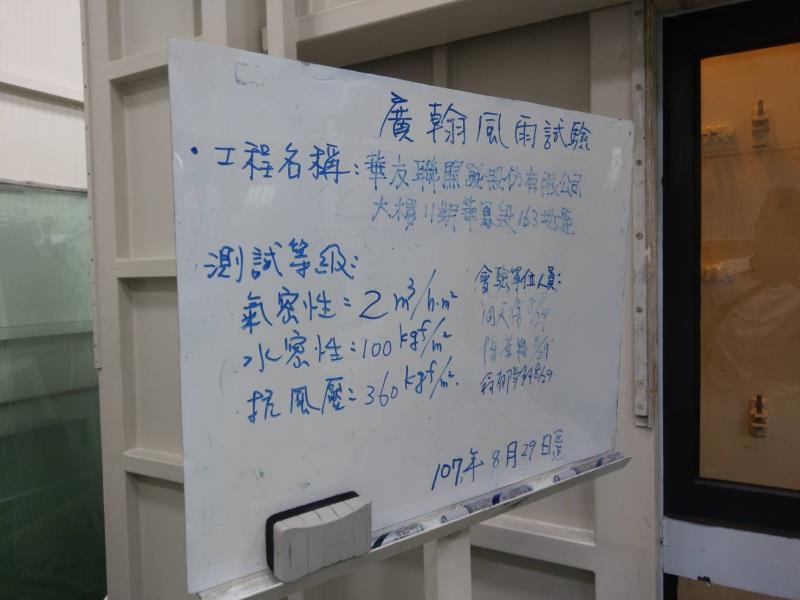 廣翰風雨試驗
• 工程名稱：華友聯開發股份有限公司
大樓11期華鳳段163地號
測試等級：
氣密性：2 m³/h·m²
水密性：100 kgf/m²
抗風壓：360 kgf/m²
會驗單位人員：
8/29
8/29
8/29
107年8月29日